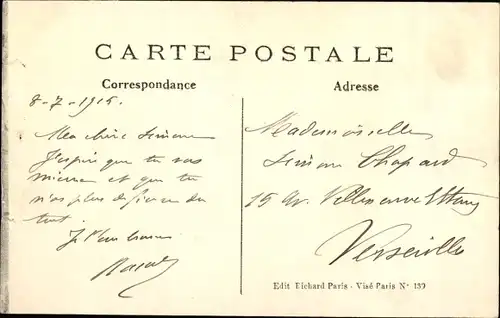 CARTE POSTALE
Correspondance
Adresse
8-7-1915.
Ma chère Simone
J'espère que tu vas
mieux et que tu
n'as plus de fièvre du
tout.
Je t'embrasse
Mademoiselle
Simone Chapard
15 Av. Villeneuve l'Etang
Versailles
Edit Richard Paris - Visé Paris No 139